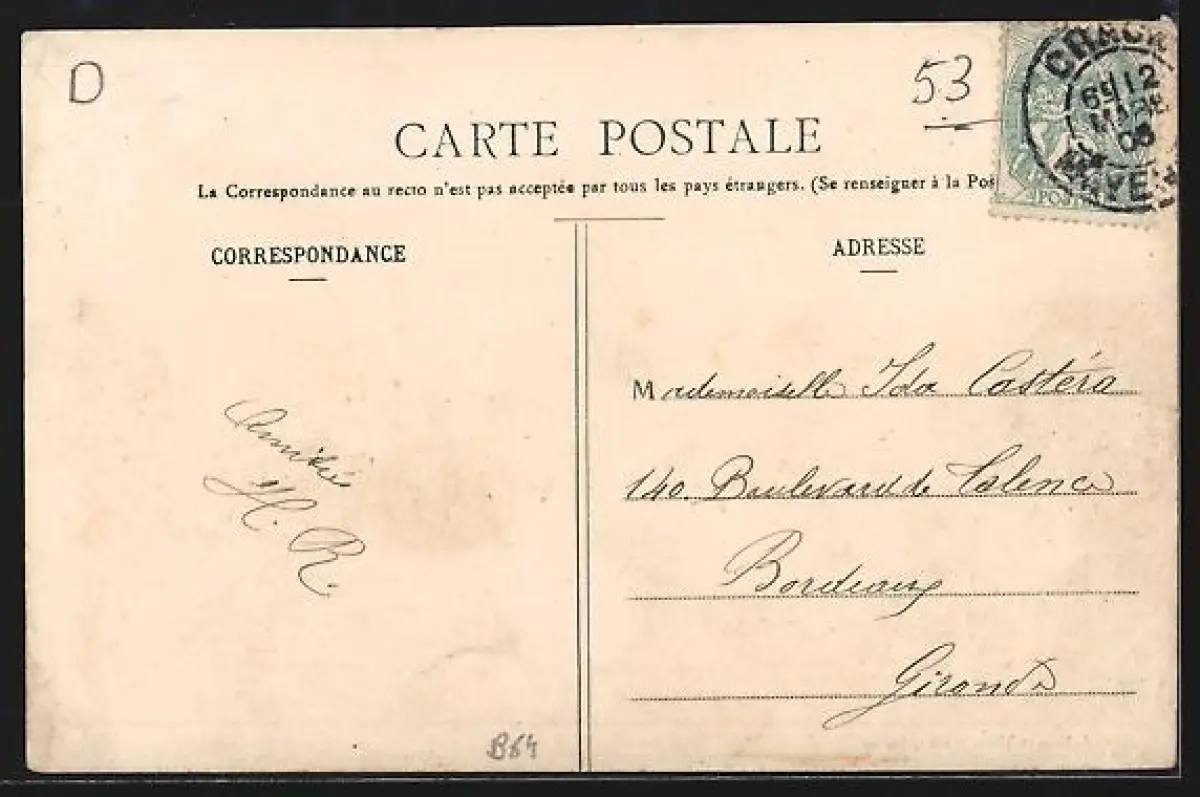 D
53
CARTE POSTALE
La Correspondance au recto n'est pas acceptée par tous les pays étrangers. (Se renseigner à la Pos
CORRESPONDANCE
ADRESSE
Mademoiselle Ida Castéra
140. Boulevard de Talence
Bordeaux
Gironde
Amitiés
H. R.
B64
CRAON
12
MARS
06
MAYENNE
POSTES